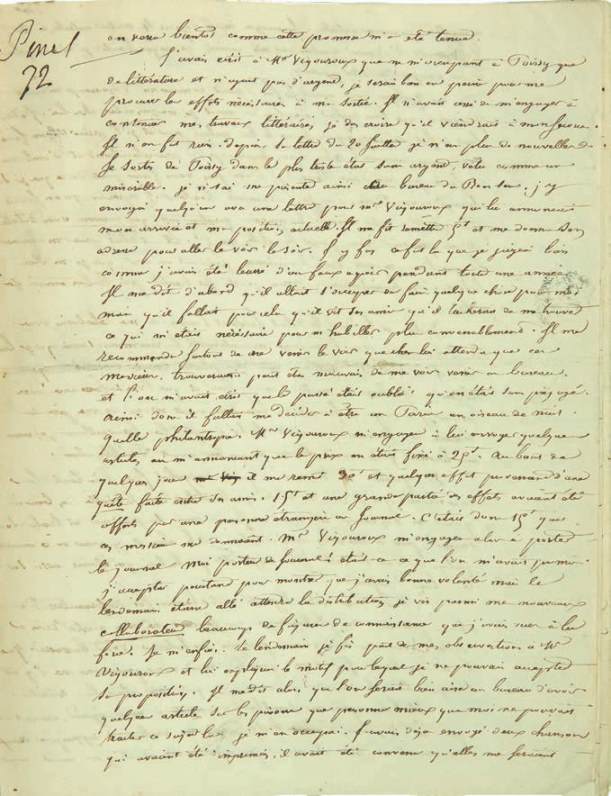 Pinel
72
on verra bientôt comme cette promesse m'a été tenue.
J'avais écrit à Mr Vigouroux que ne m'occupant à Poissy que
de littérature et n'ayant pas d'argent, je serais bien en peine pour me
procurer les effets nécessaires à ma sortie. Il n'avait cessé de m'engager à
continuer mes travaux littéraires, je dus croire qu'il viendrait à mon secours.
Il n'en fut rien. depuis sa lettre du 20 juillet je n'eus plus de nouvelles de
Je sortis de Poissy dans le plus triste état sans argent, vêtu comme un
misérable. je n'osai me présenter ainsi au bureau du Bon Sens. j'y
envoyai quelqu'un avec une lettre pour Mr Vigouroux qui lui annonçait
mon arrivée et ma position actuelle. Il me fit remettre 5f et me donna son
adresse pour aller le voir le soir. J'y fus ce fut là que je jugeai bien
comme j'avais été leurré d'un faux espoir pendant toute une année.
Il me dit d'abord qu'il allait s'occuper de faire quelque chose pour moi
mais qu'il fallait pour cela qu'il vit ses amis qu'il tacherait de me trouver
ce qui m'était nécessaire pour m'habiller plus convenablement. Il me
recommanda surtout de ne venir le voir que chez lui attendu que ces
messieurs trouveraient peut être mauvais de me voir venir au bureau.
et l'on m'avait écrit que le passé était oublié qu'on était sans préjugé.
ainsi donc il fallait me décider à être un Paria un oiseau de nuit.
quelle philantropie. Mr Vigouroux m'engagea à lui envoyer quelques
articles en m'annonçant que le prix en était fixé à 25f. Au bout de
quelques jours il me remit 30f et quelques effets provenant d'une
quête faite entre ses amis. 15f et une grande partie des effets avaient été
offerts par une personne étrangère au Journal. C'était donc 15f que
ces messieurs me donnaient. Mr Vigouroux m'engagea alors à porter
le journal. Moi porteur de journal! était ce ce que l'on m'avait promis.
j'acceptai pourtant pour montrer que j'avais bonne volonté mais le
lendemain étant allé attendre la distribution je vis parmi mes nouveaux
collaborateurs beaucoup de figures de connaissance que j'avais vues à la
force. Je m'enfuis. le lendemain je fis part de mes observations à Mr
Vigouroux et lui expliquai le motif pour lequel je ne pouvais accepter
sa proposition. Il me dit alors que l'on serait bien aise au bureau d'avoir
quelques articles sur les prisons que personne mieux que moi ne pouvait
traiter ce sujet là. je m'en occupai. J'avais déjà envoyé deux chansons
qui avaient été imprimées, il avait été convenu qu'elles me seraient